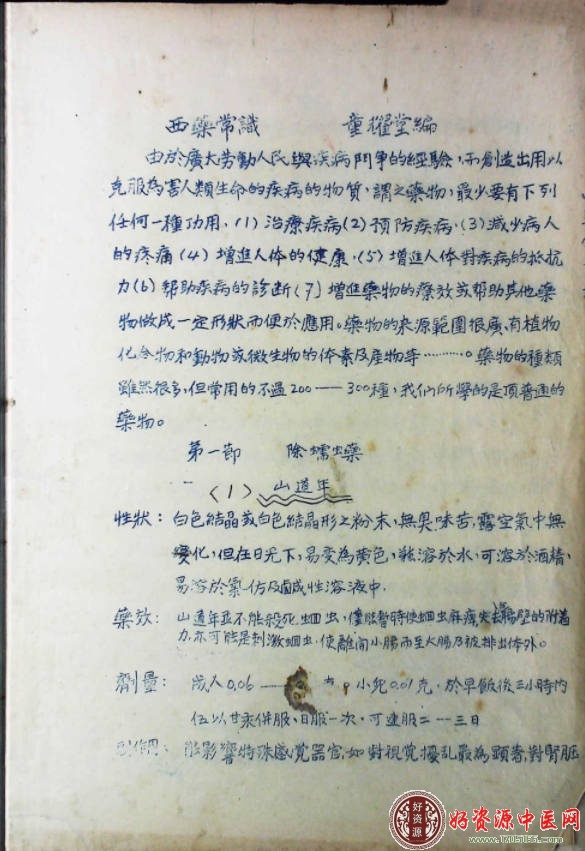 西藥常識　　童耀堂編
由於廣大劳動人民與疾病鬥爭的經驗，而創造出用以
克服為害人類生命的疾病的物質，謂之藥物，最少要有下列
任何一種功用，(1)治療疾病(2)預防疾病，(3)減少病人
的疼痛(4)增進人体的健康，(5)增進人体對疾病的抵抗
力(6)帮助疾病的診断(7)增進藥物的療效或帮助其他藥
物做成一定形狀而便於應用。藥物的来源範圍很廣，有植物
化合物和動物或微生物的体素及産物等………。藥物的種類
雖然很多，但常用的不過200——300種，我们所學的是頂普通的
藥物。
第一節　除蠕虫藥
(1)山道年
性狀：白色結晶或白色結晶形之粉末，無臭味苦，露空氣中無
變化，但在日光下，易变為黄色，難溶於水，可溶於酒精，
易溶於氯仿及鹹性溶液中．
藥效：山道年並不能殺死蛔虫，僅能暫時使蛔虫麻痺失去腸壁的附着
力，亦可能是刺激蛔虫，使離開小腸而至大腸及被排出体外。
劑量：成人0.06—— 小児0.01克，於早飯後三小時内
伍以甘汞併服，日服一次，可連服二——三日
副作用：能影響特殊感覚器官，如對視覚擾乱最為顕著，對腎脏
好资源
好资源中医网